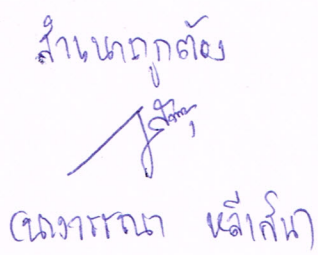 สำเนาถูกต้อง
(นางวรรณา หลีเส็น)